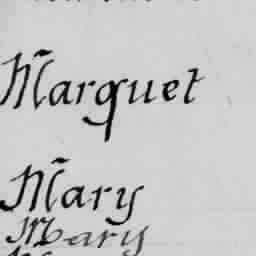 Marquet
Mary
Mary